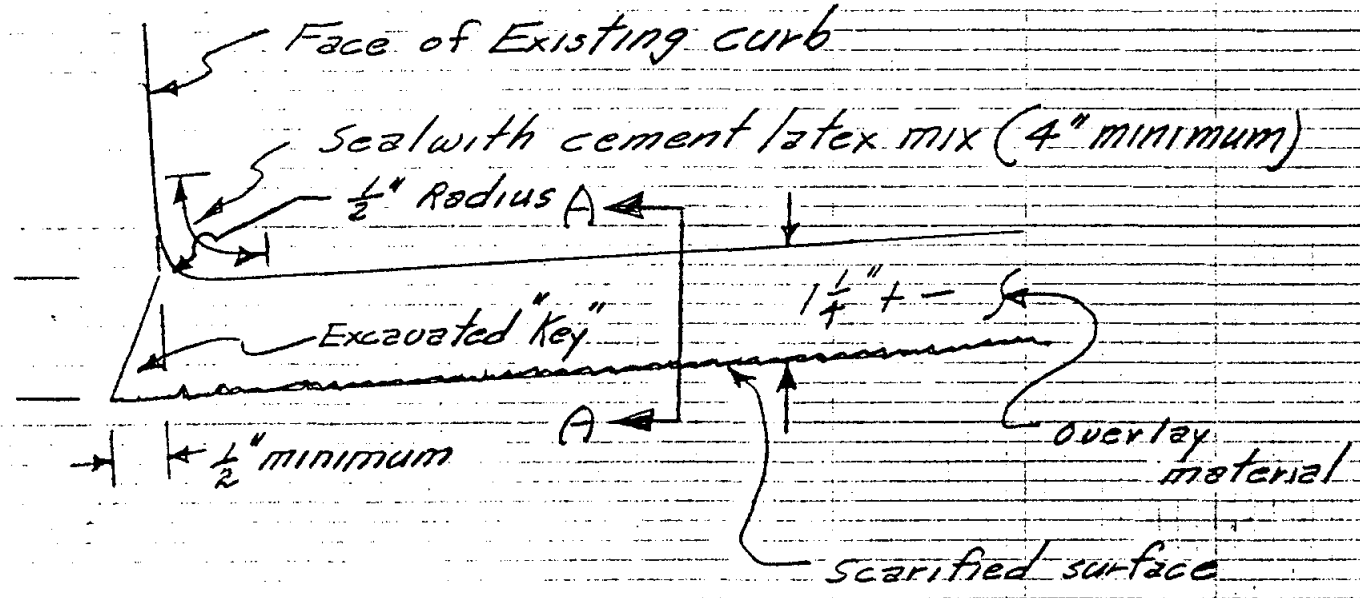 Face of Existing curb
Seal with cement latex mix (4" minimum)
1/2" Radius
A
1 1/4" + -
Excavated "Key"
A
1/2" minimum
overlay
material
Scarified surface